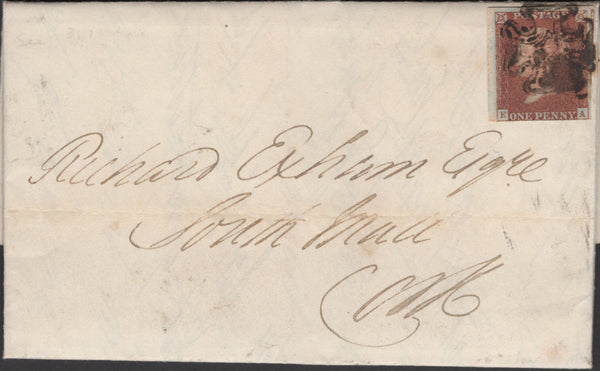 See
POSTAGE
E ONE PENNY A
Richard Exham Esqre
South Mall
Cork